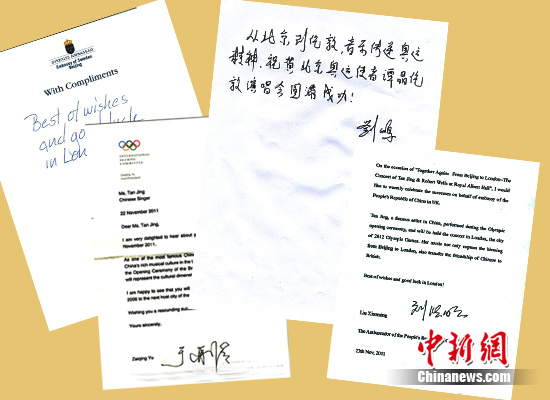 Embassy of Sweden
Beijing
With Compliments
Best of wishes
and go
in Lon
INTERNATIONAL
OLYMPIC
COMMITTEE
Ms. Tan Jing
Chinese Singer
22 November 2011
Dear Ms. Tan Jing,
I am very delighted to hear about y
November 2011.
As one of the most famous Chine
China's rich musical culture in the
the Opening Ceremony of the Be
will represent the cultural dimensi
I am happy to see that you will
2008 to the next host city of the
Wishing you a resounding suc
Yours sincerely,
Zaiqing Yu
于再清
从北京到伦敦,音乐传递奥运
精神.祝贺北京奥运使者谭晶伦
敦演唱会圆满成功!
刘鹏
On the occasion of "Together Again- From Beijing to London-The
Concert of Tan Jing & Robert Wells at Royal Albert Hall", I would
like to warmly celebrate the success on behalf of embassy of the
People's Republic of China in UK.
Tan Jing, a famous artist in China, performed during the Olympic
opening ceremony, and will be held the concert in London, the city
of 2012 Olympic Games. Her music not only express the blessing
from Beijing to London, also transfer the friendship of Chinese to
British.
Best of wishes and good luck in London!
Liu Xiaoming
刘晓明
The Ambassador of the People's Re
15th Nov, 2011
中新网
Chinanews.com